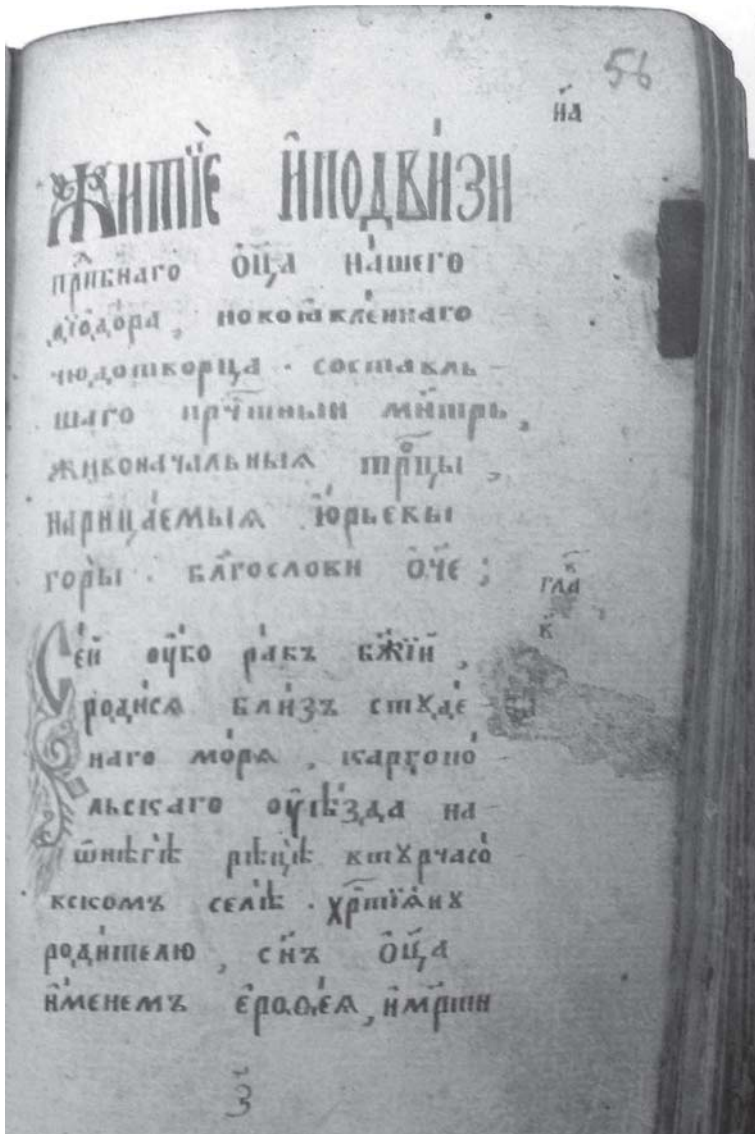 56
н҃а
Житїѐ и҆подви́зи
прⷣбнаго ѻ҆ц҃а на́шего
дїѻдора, новоꙗвле́ннаго
чюдотворца · составль
шаго пречⷭ҇тныи мн҃трь,
живоначальныѧ трⷪ҇цы,
нарица́емыѧ ю҆рьевы
горы̀ · блг҃ослови ѻ҆ч҃е ;
гла
в҃
Се́й ᲂу҆́бо ра́бъ бж҃їй,
роди́сѧ бли́зъ стꙋде́
наго мо́рѧ, каргопо́
льскаго ᲂу҆ѣ́зда на
ѡ҆нѣ́гѣ рѣцѣ̀ втꙋрчасо́
вском селѣ̀ · хрⷭ҇тїѧ́нꙋ
роди́телю, сн҃ъ ѻ҆ц҃а
и҆́менемъ є҆роѳе́ѧ, и҆мр҃іи
з҃